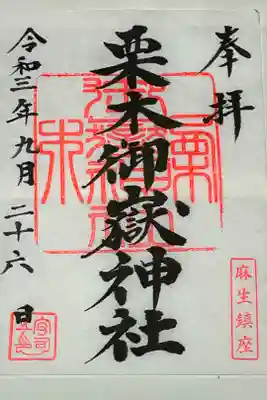 奉拝
栗木御嶽神社
麻生鎮座
令和三年九月二十六日